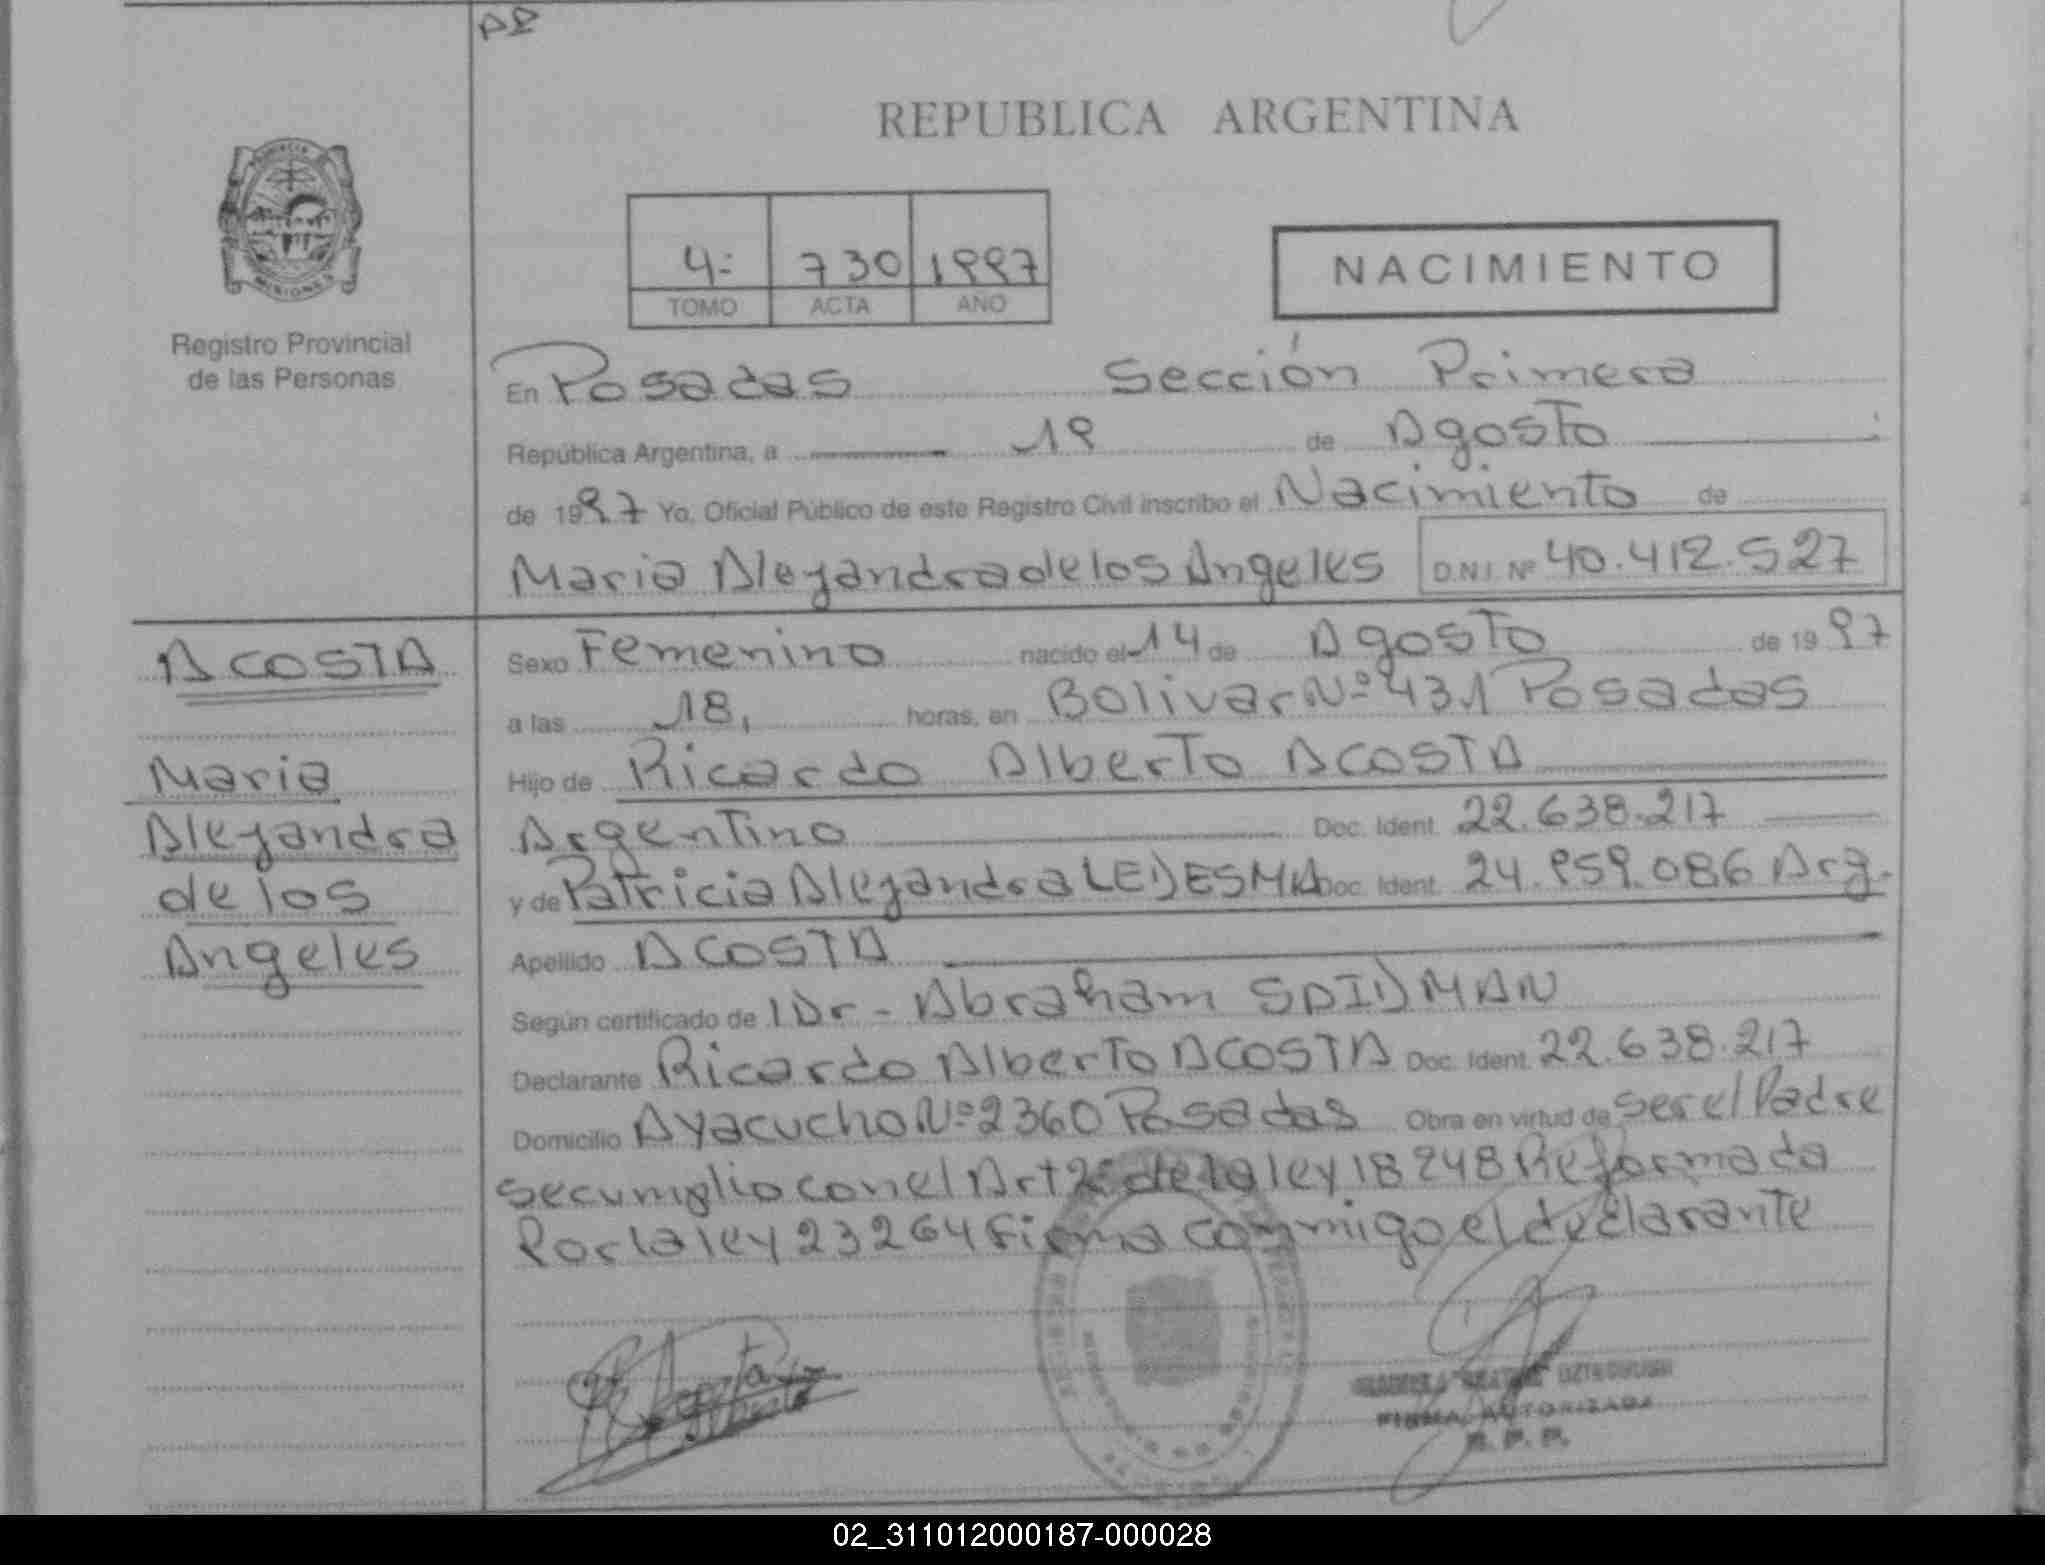 REPUBLICA ARGENTINA
PROVINCIA DE
MISIONES
Registro Provincial
de las Personas
4- 730 1997
TOMO ACTA AÑO
NACIMIENTO
En Posadas Sección Primera
República Argentina, a 19 de Agosto
de 1997 Yo, Oficial Público de este Registro Civil inscribo el Nacimiento de
Maria Alejandra de los Angeles D.N.I. Nº 40.412.527
ACOSTA
Maria
Alejandra
de los
Angeles
Sexo Femenino nacido el 14 de Agosto de 1997
a las 18, horas, en Bolivar Nº 431 Posadas
Hijo de Ricardo Alberto ACOSTA
Argentino Doc. Ident. 22.638.217
y de Patricia Alejandra LEDESMA Doc. Ident. 24.959.086 Arg.
Apellido ACOSTA
Según certificado de Dr - Abraham SAIDMAN
Declarante Ricardo Alberto ACOSTA Doc. Ident. 22.638.217
Domicilio Ayacucho Nº 2360 Posadas Obra en virtud de ser el Padre
se cumplio con el Art 2º de la ley 18248 Reformada
Por la ley 23264 firma conmigo el declarante
FIRMA AUTORIZADA
R. P. P.
02_311012000187-000028